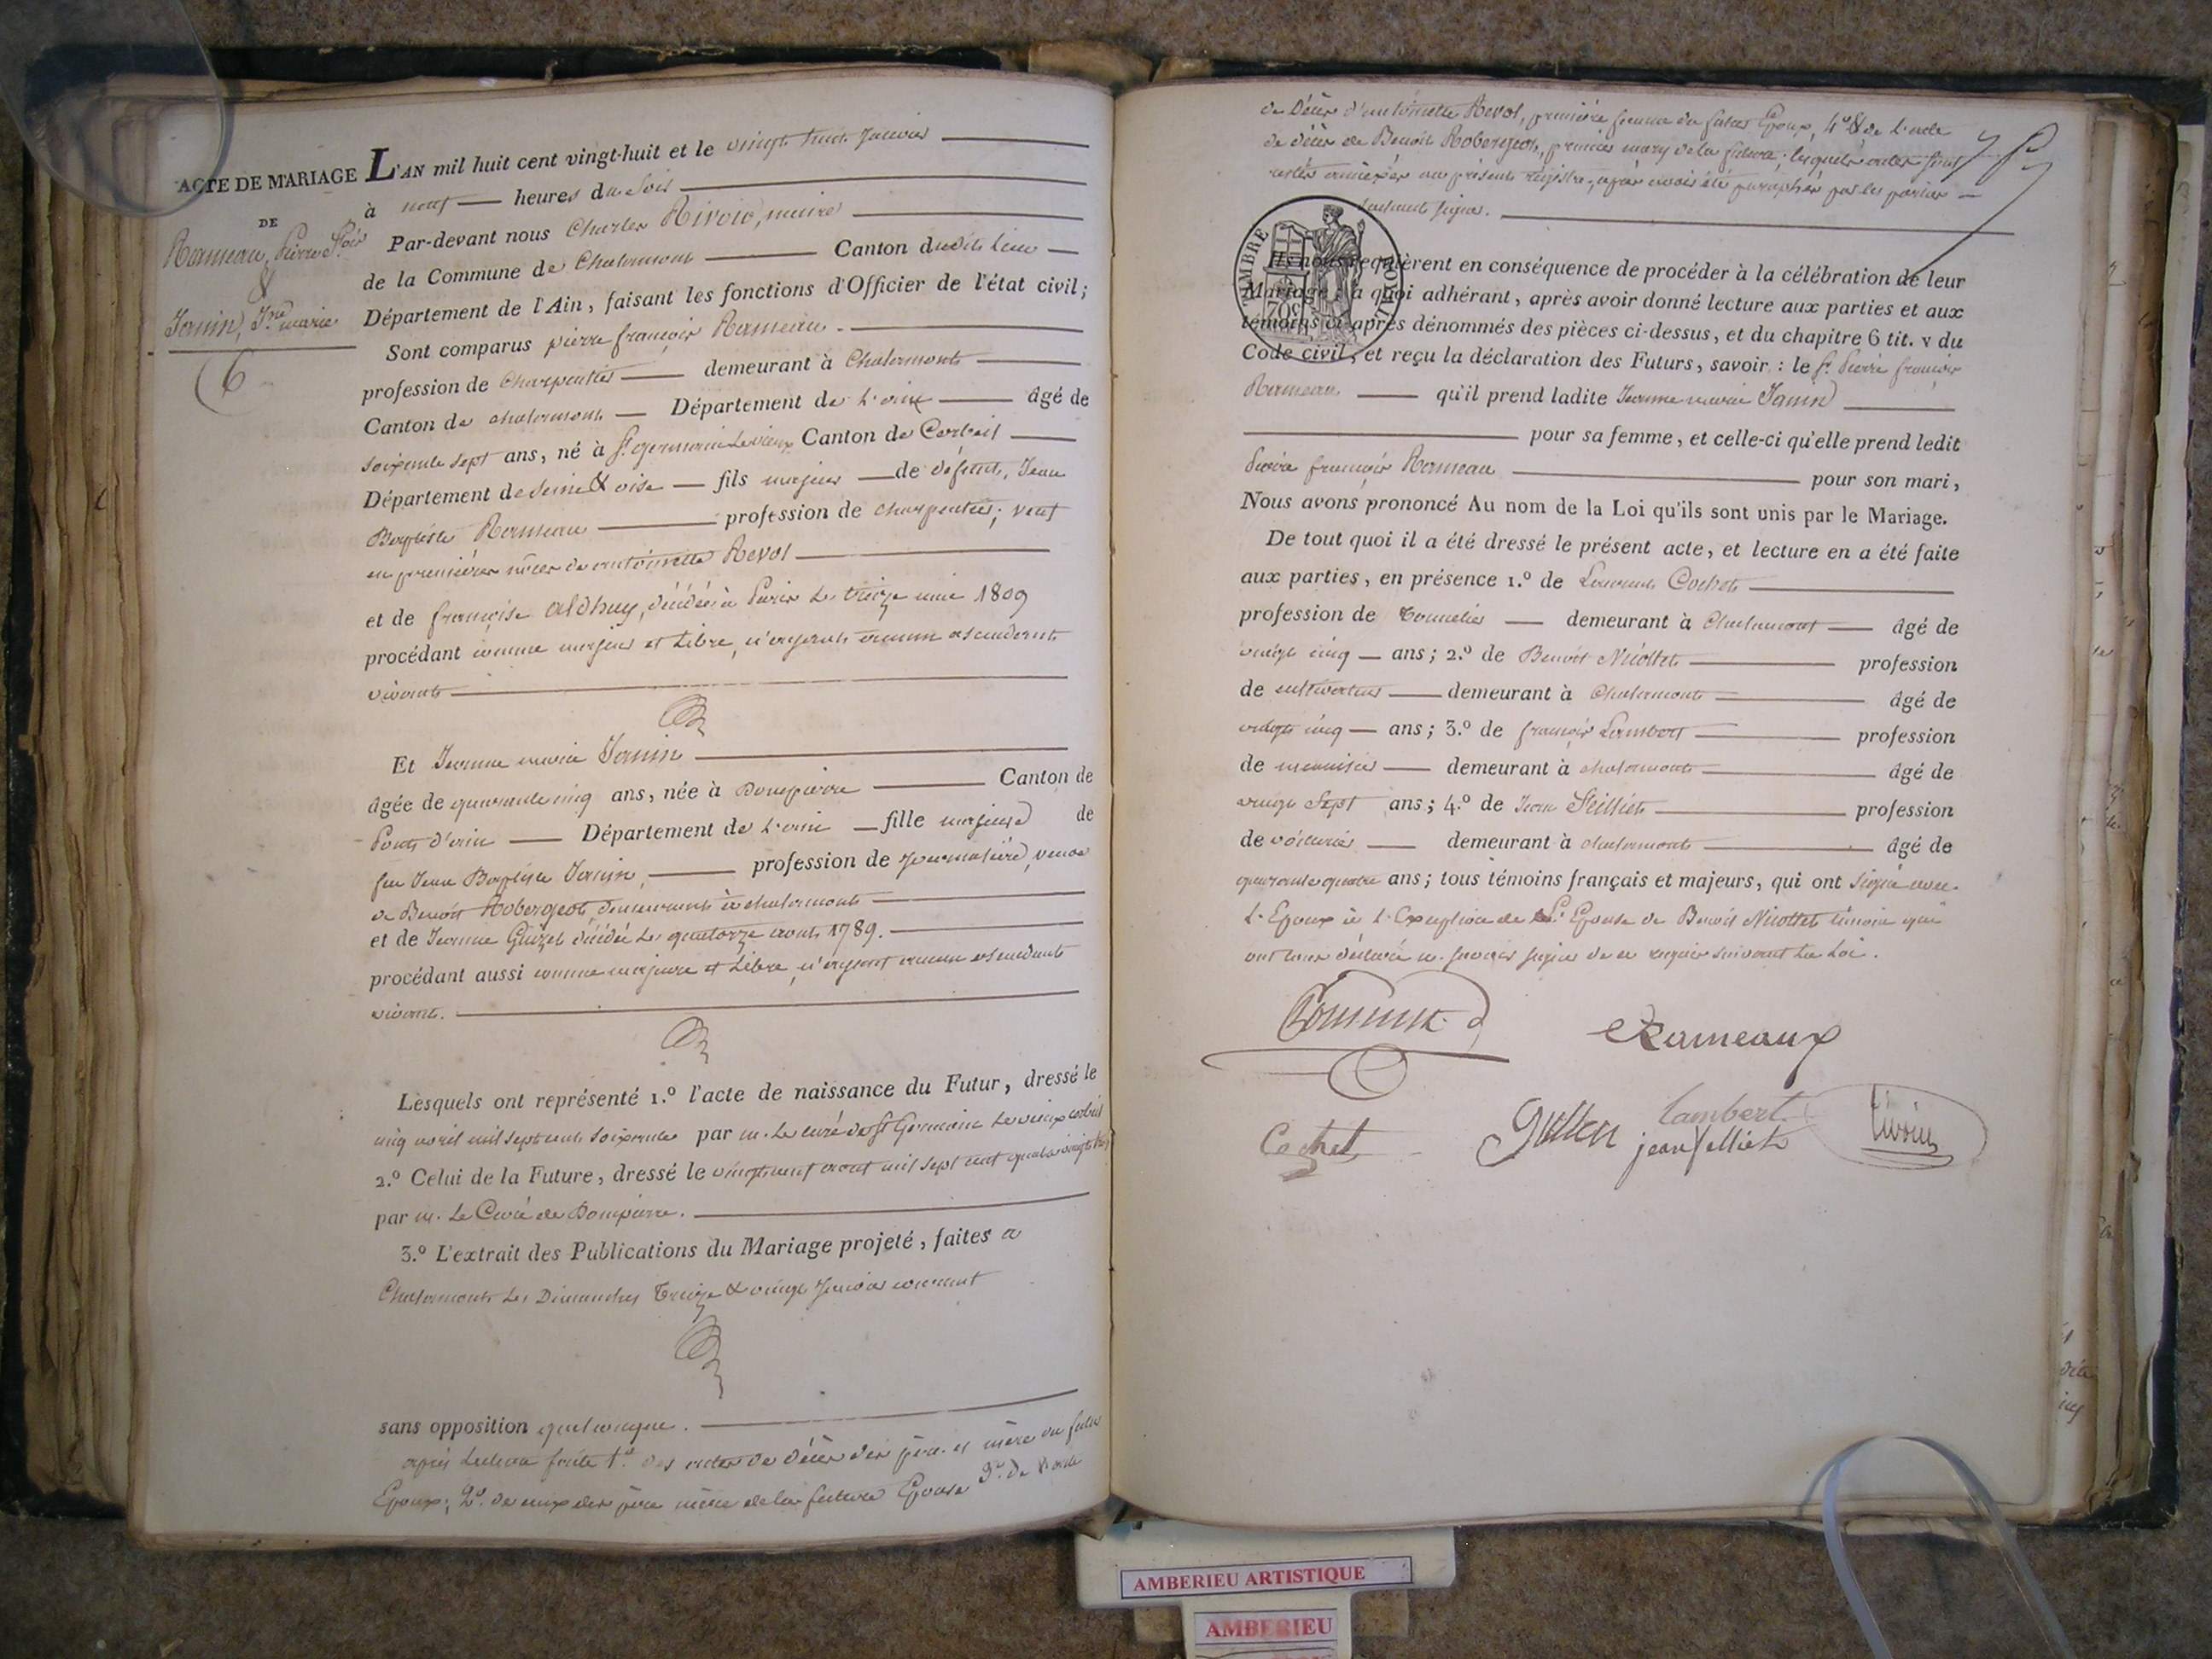 ACTE DE MARIAGE
DE
Rameau, Pierre f.çois
&
Janin, J.ne marie
6
L'AN mil huit cent vingt-huit et le vingt huit Janvier
à neuf heures du soir
Par-devant nous Charles Rivoir, maire
de la Commune de Chalamont Canton dudit lieu
Département de l'Ain, faisant les fonctions d'Officier de l'état civil;
Sont comparus pierre françois Rameau.
profession de Charpentier demeurant à Chalamont
Canton de chalamont Département de L'ain âgé de
soixante sept ans, né à St. germain Le vieux Canton de Corbeil
Département de Seine & oise fils majeur de défunt, Jean
Baptiste Rameau profession de charpentier; veuf
en premières nôces de antoinette Revol
et de françoise aldhuy, décédée à Paris Le treize mai 1809
procédant comme majeur et Libre, n'ayant aucun ascendant
vivant
Et Jeanne marie Janin
âgée de quarante cinq ans, née à Dompierre Canton de
Pont d'ain Département de L'ain fille majeure de
feu Jean Baptiste Janin, profession de journalière, veuve
de Benoit Robergeot, demeurant à chalamont
et de Jeanne Guizel décédée Le quatorze août 1789.
procédant aussi comme majeure et Libre, n'ayant aucun ascendant
vivant.
Lesquels ont représenté 1.º l'acte de naissance du Futur, dressé le
cinq avril mil sept cent soixante par m. Le curé de St Germain Le vieux corbeil
2.º Celui de la Future, dressé le vingt neuf août mil sept cent quatre vingt
par m. Le Curé de Dompierre.
3.º L'extrait des Publications du Mariage projeté, faites a
Chalamont Les Dimanches Treize & vingt Janvier courant
sans opposition quelconque.
après Lecture faite 1.º des actes de décès des père et mère du futur
Epoux; 2.º de ceux des père mère de la future Epouse 3.º de L'acte
de Décès d'antoinette Revol, première femme du futur Epoux, 4.º & de L'acte
de décès de Benoit Robergeot, premier mary de la future; lesquels actes sont
restés annéxés au présent régistre, après avoir été paraphés par les parties
sachant signer.
TIMBRE ROYAL
70
Ils nous requièrent en conséquence de procéder à la célébration de leur
Mariage; à quoi adhérant, après avoir donné lecture aux parties et aux
témoins ci-après dénommés des pièces ci-dessus, et du chapitre 6 tit. v du
Code civil, et reçu la déclaration des Futurs, savoir : le Sr. Pierre françois
Rameau qu'il prend ladite Jeanne marie Janin
pour sa femme, et celle-ci qu'elle prend ledit
Pierre françois Rameau pour son mari,
Nous avons prononcé Au nom de la Loi qu'ils sont unis par le Mariage.
De tout quoi il a été dressé le présent acte, et lecture en a été faite
aux parties, en présence 1.º de Laurent Cochet
profession de Tonnelier demeurant à Chalamont âgé de
vingt cinq ans; 2.º de Benoit Nicollet profession
de cultivateur demeurant à Chalamont âgé de
vingt cinq ans; 3.º de françois Lambert profession
de menuisier demeurant à chalamont âgé de
vingt Sept ans; 4.º de Jean profession
de voiturier demeurant à chalamont âgé de
quarante quatre ans; tous témoins français et majeurs, qui ont signé avec
L'Epoux à L'Exception de L' Epouse de Benoit Nicollet témoin qui
ont déclaré ne savoir signer de ce requis suivant La Loi.
Rameaux
Cochet
Lambert
jean
Rivoir
AMBERIEU ARTISTIQUE
AMBERIEU